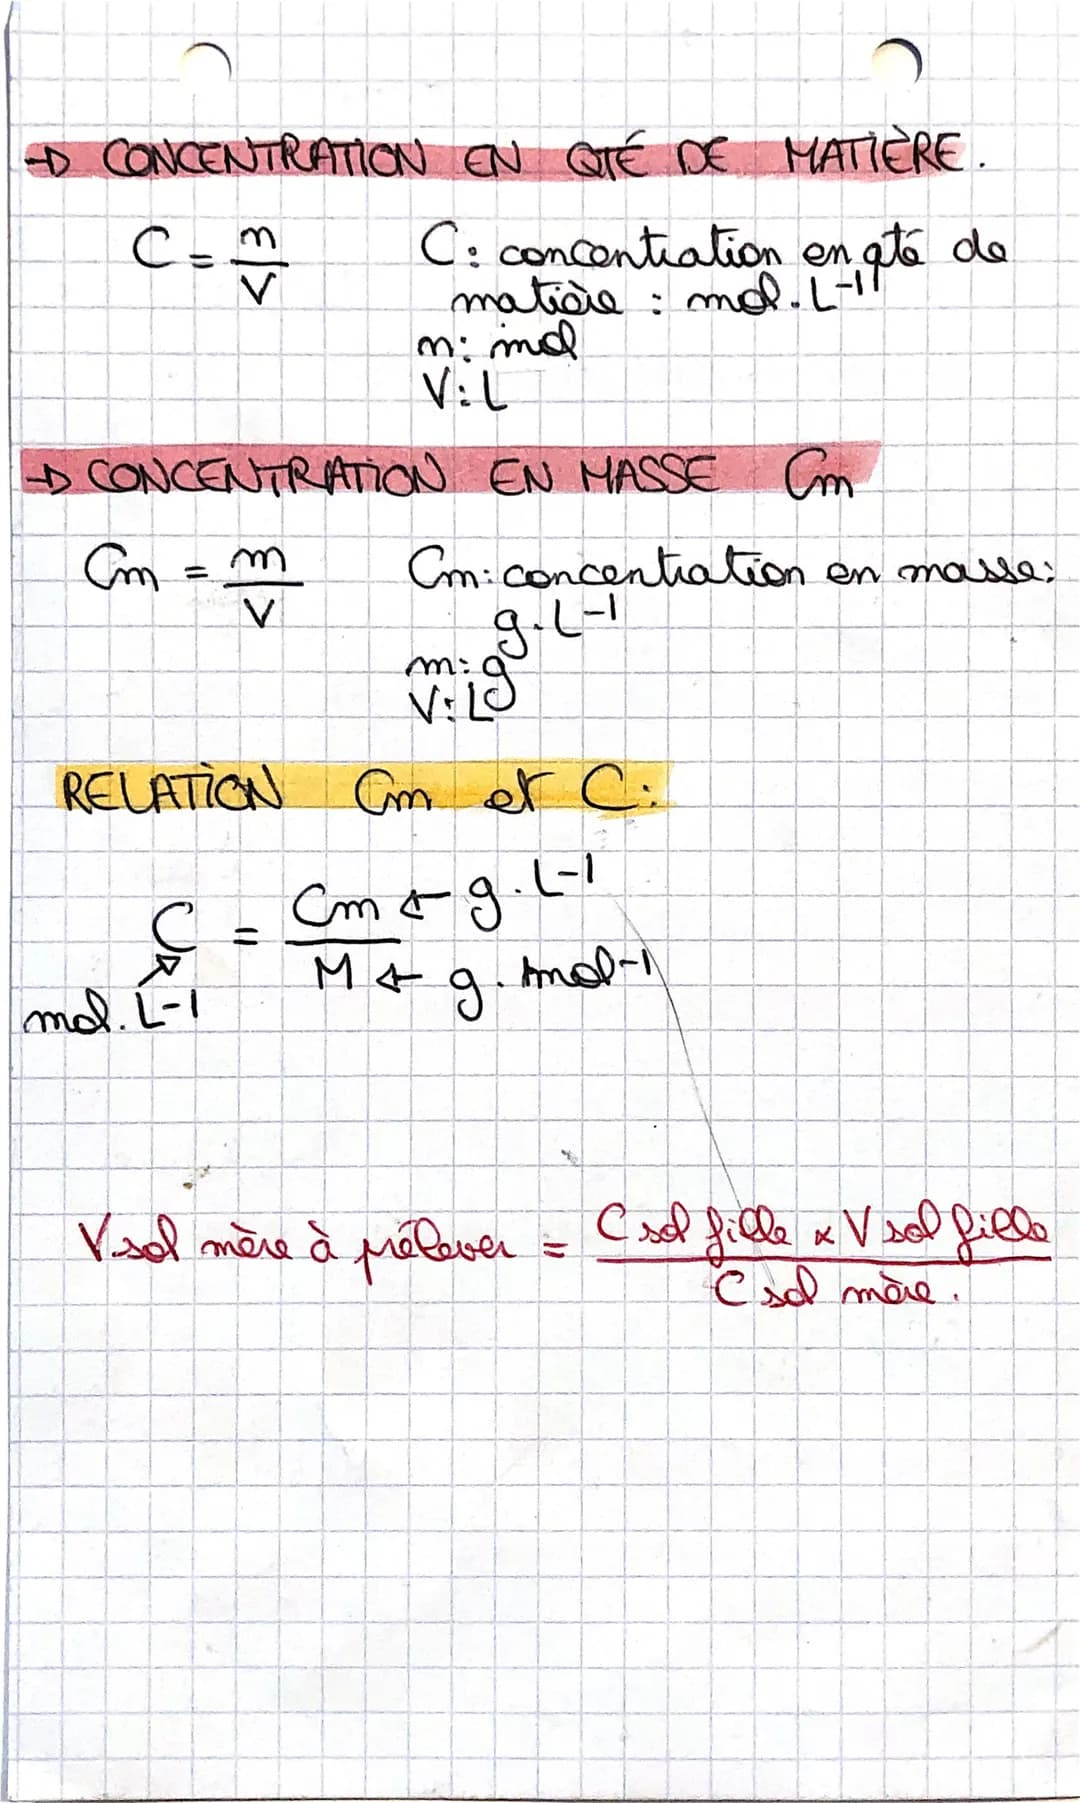 → CONCENTRATION EN QTÉ DE MATIÈRE.
C = n/V
C: concentration en qté de
matière : mol.L-1
n: mol
V: L
→ CONCENTRATION EN MASSE Cm
Cm = m/V
Cm: concentration en masse:
g.L-1
m: g
V: L
RELATION Cm et C:
C = Cm ← g.L-1
M ← g.mol-1
mol.L-1
V sol mère à prélever = C sol fille x V sol fille
C sol mère.